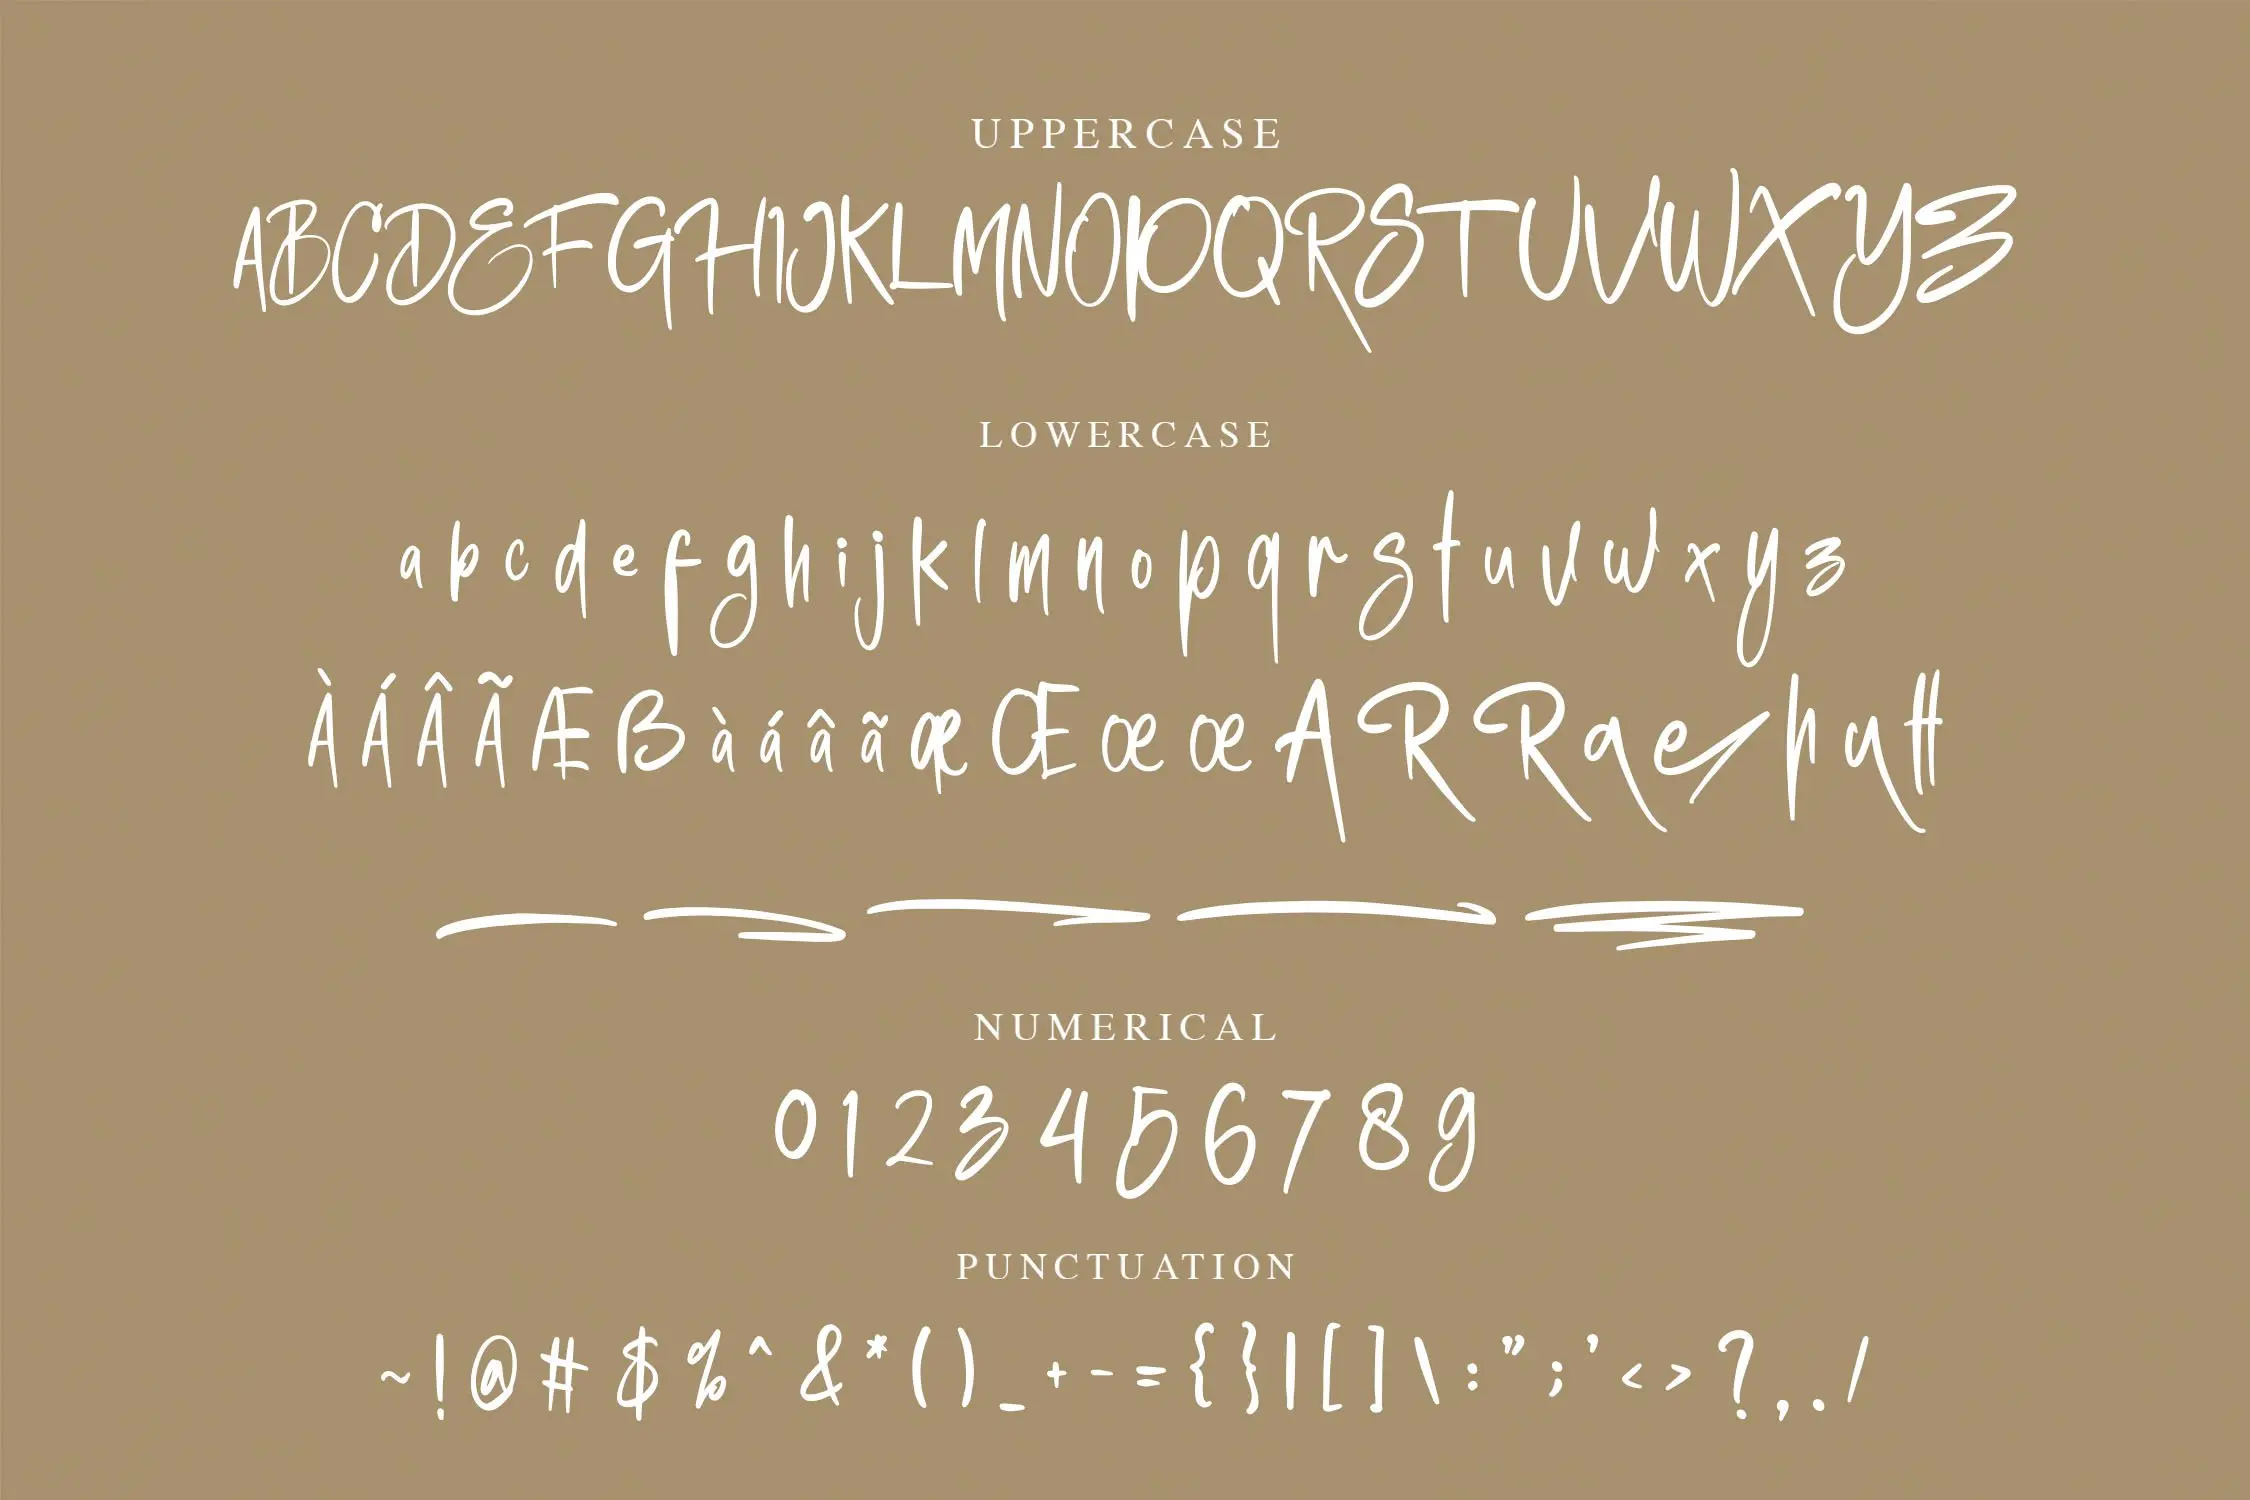 UPPERCASE
ABCDEFGHIJKLMNOPQRSTUVWXYZ
LOWERCASE
abcdefghijklmnopqrstuvwxyz
ÀÁÂÃÆßàáâãæŒœœARRaehutt
NUMERICAL
0123456789
PUNCTUATION
~!@#$%^&*()_+-={}|[]\:”;’<>?,./